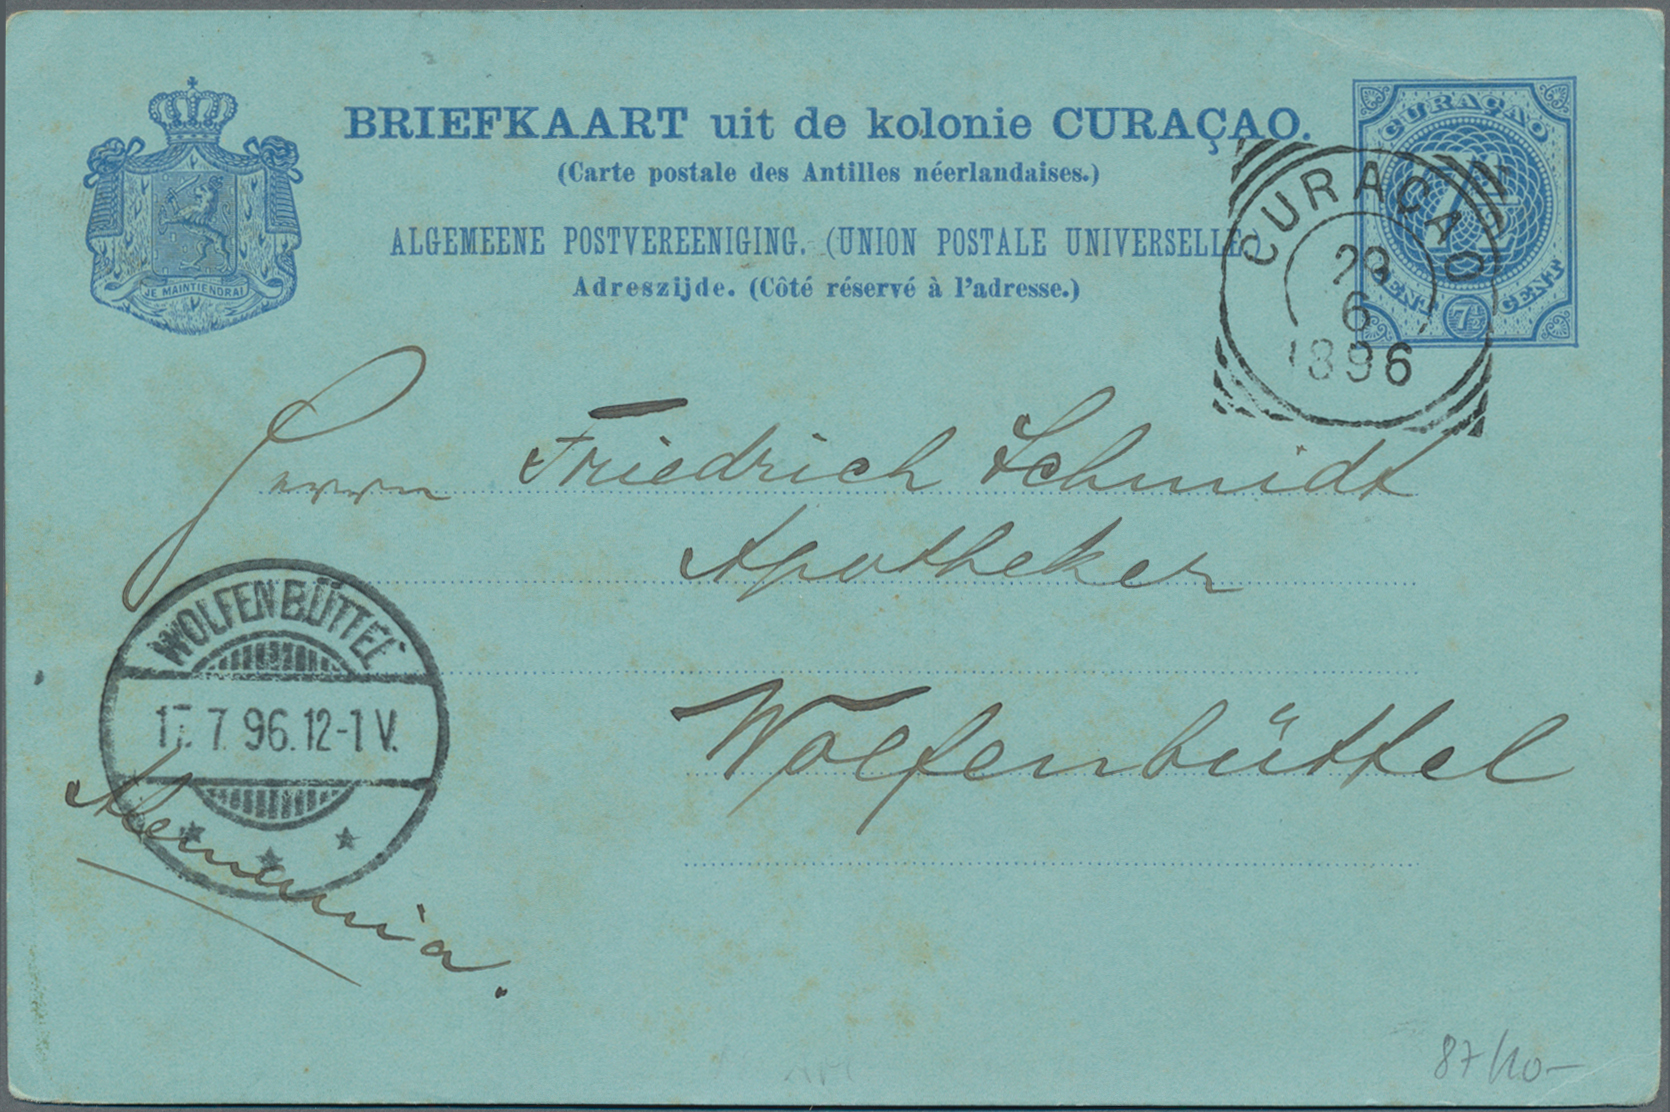 BRIEFKAART uit de kolonie CURAÇAO.
(Carte postale des Antilles néerlandaises.)
ALGEMEENE POSTVEREENIGING. (UNION POSTALE UNIVERSELLE
Adreszijde. (Côté réservé à l'adresse.)
JE MAINTIENDRAI
CURAÇAO
7½
CENT 7½ CENT
CURAÇAO
6
1896
Herrn Friedrich Schmidt
Apotheker
Wolfenbüttel
WOLFENBÜTTEL
17. 7. 96. 12-1 V.
87/110-